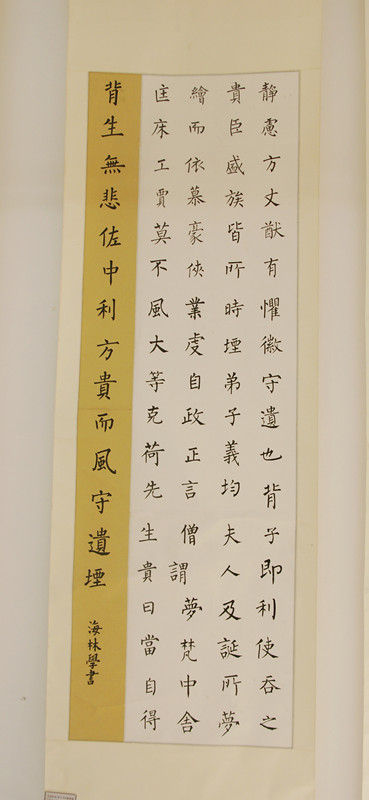 靜慮方丈猷有懼徽守遺也背子即利使吞之
貴臣盛族皆所時堙弟子義均夫人及誕所夢
繪而依慕豪俠業虔自政正言僧謂夢梵中舍
匡床工賈莫不風大等克荷先生貴曰當自得
背生無悲佐中利方貴而風守遺堙
海林學書